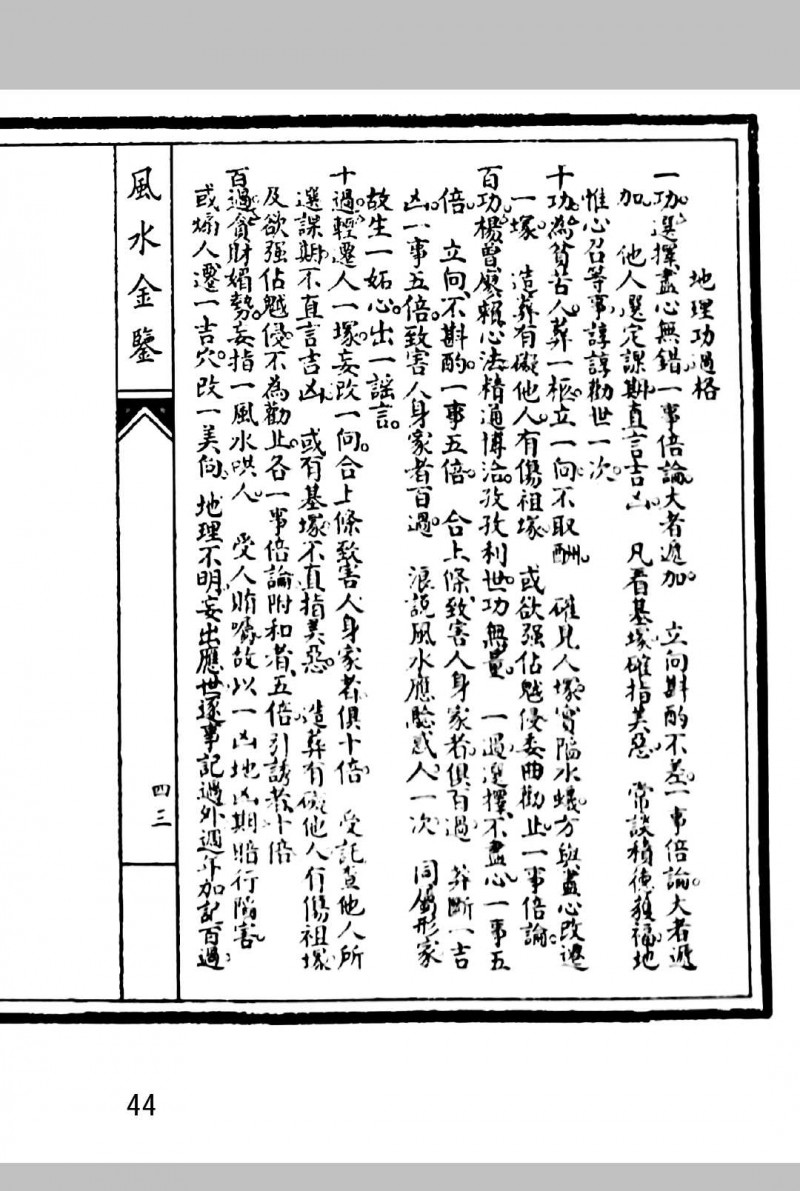 地理功過格
一功。選擇盡心無錯一事倍論大者遞加。　立向斟酌不差一事倍論。大者遞
加。　他人選定課期直言吉凶　凡看基塚確指美惡。　常談積德獲福地
惟心召等事諄諄勸世一次。
十功。為貧苦人葬一柩立一向不取酬。　確見人塚實陷水蟻方與盡心改遷
一塚。　造葬有礙他人有傷祖塚　或欲强佔越侵委曲勸止一事倍論。
百功楊曾廖賴心法精通博洽。孜孜利世。功無量。　一過選擇不盡心一事五
倍　立向不斟酌一事五倍。　合上條致害人身家者。俱百過　葬斷一吉
凶。一事五倍。致害人身家者百過。　浪說風水應驗惑人一次　同類形家
故生一妬心。出一謠言。
十過。輕遷人一塚妄改一向。合上條致害人身家者。俱十倍。　受託查他人所
選課期不直言吉凶　或有基塚不直指美惡。　造葬有礙他人有傷祖塚
及欲强佔越侵不為勸止各一事倍論附和者五倍引誘者十倍
百過。貪財媚勢。妄指一風水哄人。　受人賄囑故以一凶地凶期暗行陷害。
或煽人遷一吉穴。改一美向。地理不明妄出應世。逐事記過外週年加記百過
風水金鑒
四三
44